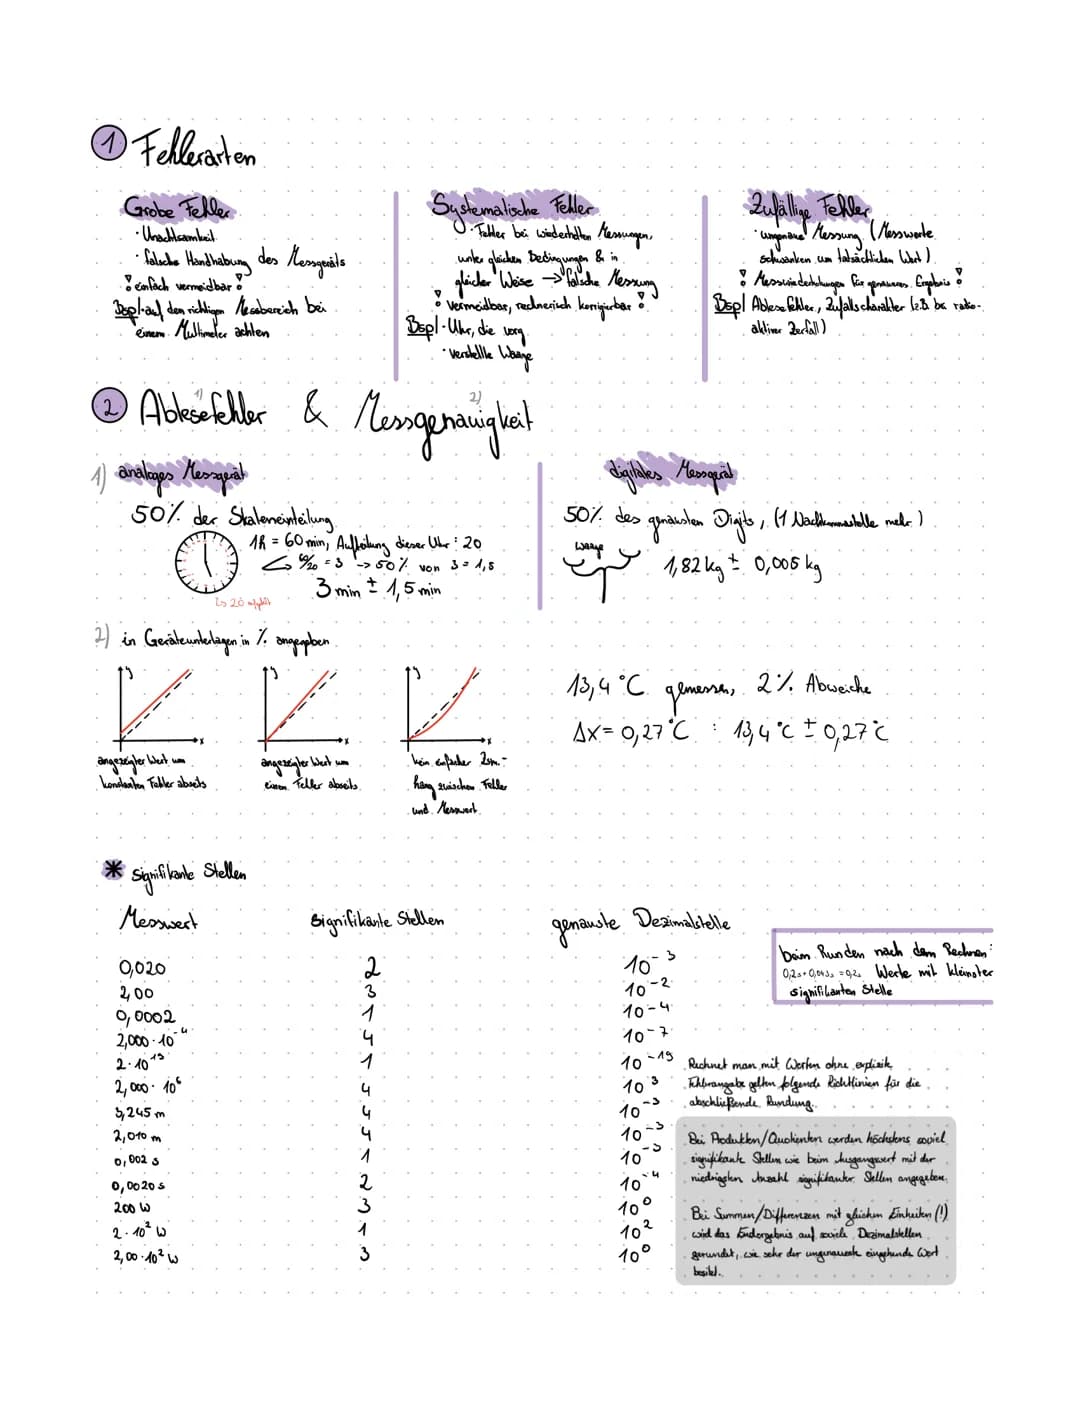 1 Fehlerarten
Grobe Fehler
· Unachtsamkeit
· falsche Handhabung des Messgeräts
! einfach vermeidbar !
Bsp/ auf den richtigen Messbereich bei
einem Multimeter achten
Systematische Fehler
· Fehler bei wiederholten Messungen,
unter gleichen Bedingungen & in
gleicher Weise → falsche Messung
! vermeidbar, rechnerisch korrigierbar !
Bsp/ · Uhr, die vorg.
· verstellte Waage
Zufällige Fehler
· ungenaue Messung (Messwerte
schwanken um tatsächlichen Wert)
! Messwiederholungen für genaueres Ergebnis !
Bsp/ Ablesefehler, Zufallscharakter (z.B. bei radio-
aktiver Zerfall)
2 Ablesefehler 1) & Messgenauigkeit 2)
1) analoges Messgerät
50% der Skaleneinteilung
1h = 60 min, Aufteilung dieser Uhr: 20
60/20 = 3 → 50% von 3 = 1,5
3 min ± 1,5 min
↳ 20 aufgeteilt
digitales Messgerät
50% des genausten Digits, (1 Nachkommastelle mehr)
Waage
1,82 kg ± 0,005 kg
2) in Geräteunterlagen in % angegeben
y
x
angezeigter Wert um
konstanten Fehler abseits
y
x
angezeigter Wert um
einen Fehler abseits
y
x
kein einfacher Zsm.-
hang zwischen Fehler
und Messwert
13,4 °C gemessen, 2% Abweiche
Δx = 0,27 °C : 13,4 °C ± 0,27 °C
* Signifikante Stellen
Messwert Signifikante Stellen genauste Dezimalstelle
0,020 2 10⁻³
2,00 3 10⁻²
0,0002 1 10⁻⁴
2,000·10⁻⁴ 4 10⁻⁷
2·10¹⁹ 1 10⁻¹⁹
2,000·10⁶ 4 10³
5,245 m 4 10⁻³
2,010 m 4 10⁻³
0,002 s 1 10⁻³
0,0020 s 2 10⁻⁴
200 W 3 10⁰
2·10² W 1 10²
2,00·10² W 3 10⁰
beim Runden nach dem Rechnen:
0,2s+0,043s = 0,2s Werte mit kleinster
signifikanten Stelle
Rechnet man mit Werten ohne explizite
Fehlerangabe gelten folgende Richtlinien für die
abschließende Rundung.
Bei Produkten/Quotienten werden höchstens soviel
signifikante Stellen wie beim Ausgangswert mit der
niedrigsten Anzahl signifikanter Stellen angegeben.
Bei Summen/Differenzen mit gleichen Einheiten (!)
wird das Endergebnis auf soviele Dezimalstellen
gerundet, wie sehr der ungenauste eingehende Wert
besitzt.